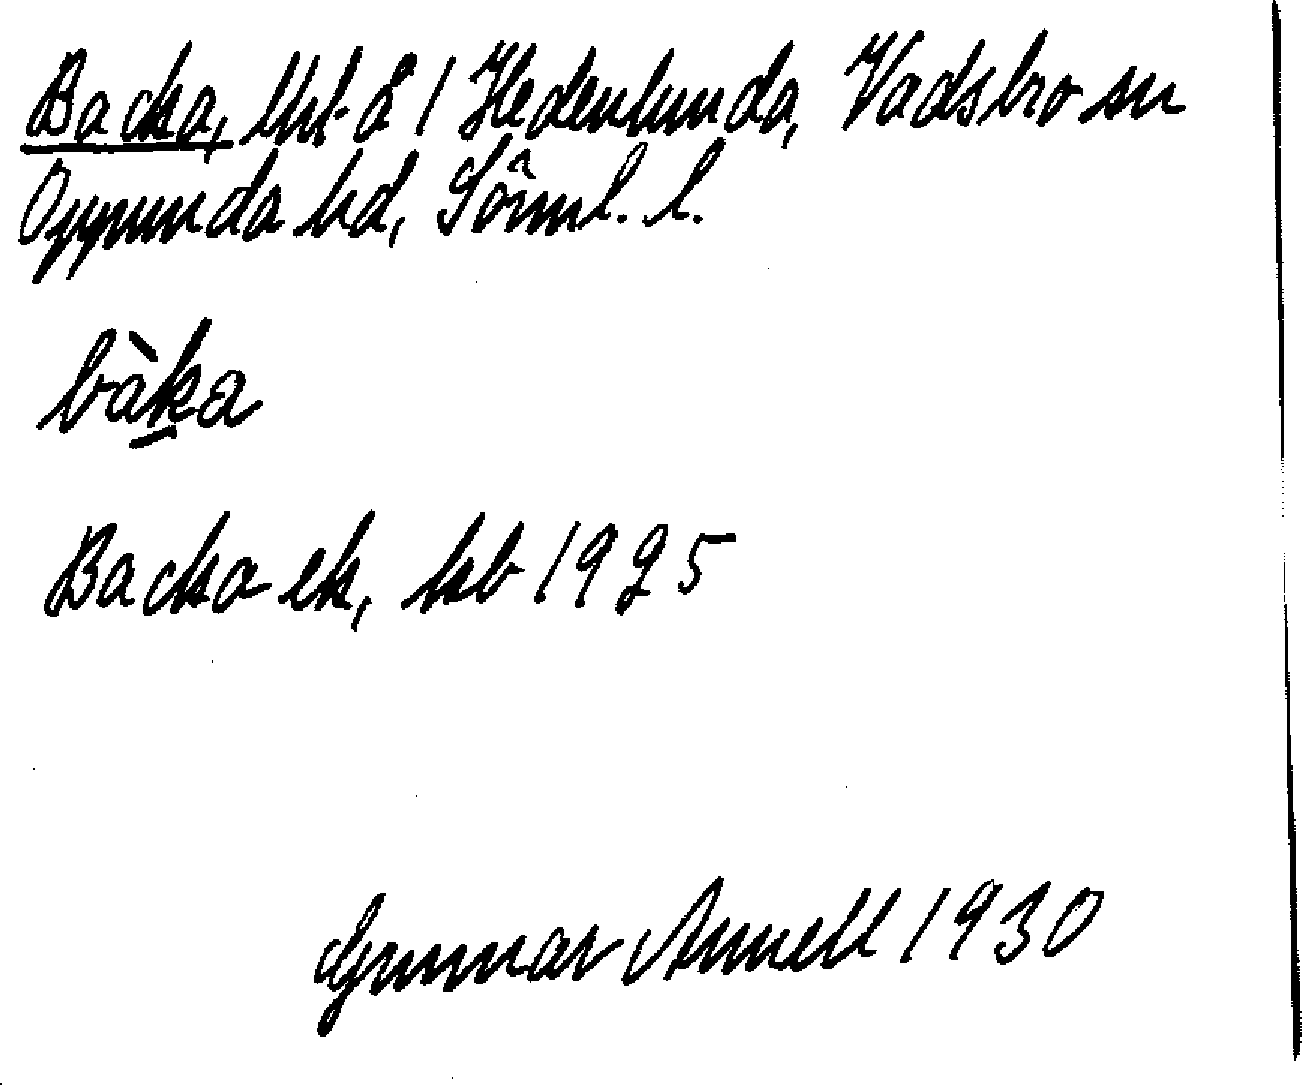 Backa, tht å / Hedenlunda, Vadsbro sn
Oppunda hd, Sörml. l.
bàka
Backa ek, kb 1925
Gunnar Annell 1930